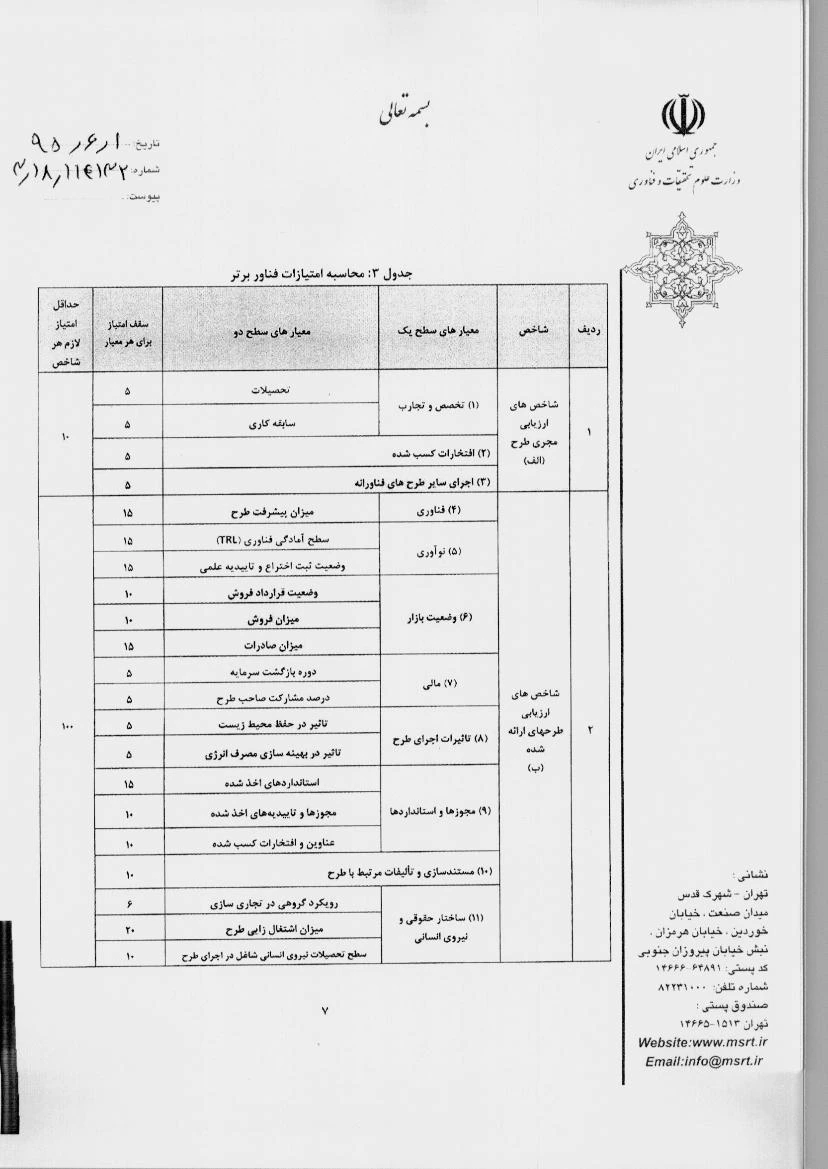 بسمه تعالی
جمهوری اسلامی ایران
وزارت علوم تحقیقات و فناوری
تاریخ: ۹۵٫۶٫۱
شماره:
پیوست:
جدول ۳: محاسبه امتیازات فناور برتر
ردیف شاخص معیار های سطح یک معیار های سطح دو سقف امتیاز برای هر معیار حداقل امتیاز لازم هر شاخص
۱ شاخص های ارزیابی مجری طرح (الف) (۱) تخصص و تجارب تحصیلات ۵ ۱۰
سابقه کاری ۵
(۲) افتخارات کسب شده ۵
(۳) اجرای سایر طرح های فناورانه ۵
۲ شاخص های ارزیابی طرحهای ارائه شده (ب) (۴) فناوری میزان پیشرفت طرح ۱۵ ۱۰۰
(۵) نوآوری سطح آمادگی فناوری (TRL) ۱۵
وضعیت ثبت اختراع و تاییدیه علمی ۱۵
(۶) وضعیت بازار وضعیت قرارداد فروش ۱۰
میزان فروش ۱۰
میزان صادرات ۱۵
(۷) مالی دوره بازگشت سرمایه ۵
درصد مشارکت صاحب طرح ۵
(۸) تاثیرات اجرای طرح تاثیر در حفظ محیط زیست ۵
تاثیر در بهینه سازی مصرف انرژی ۵
(۹) مجوزها و استانداردها استانداردهای اخذ شده ۱۵
مجوزها و تاییدیه‌های اخذ شده ۱۰
عناوین و افتخارات کسب شده ۱۰
(۱۰) مستندسازی و تألیفات مرتبط با طرح ۱۰
(۱۱) ساختار حقوقی و نیروی انسانی رویکرد گروهی در تجاری سازی ۶
میزان اشتغال زایی طرح ۲۰
سطح تحصیلات نیروی انسانی شاغل در اجرای طرح ۱۰
۷
نشانی:
تهران - شهرک قدس
میدان صنعت ، خیابان
خوردین ، خیابان هرمزان ،
نبش خیابان پیروزان جنوبی
کد پستی: ۶۴۸۹۱-۱۴۶۶۶
شماره تلفن: ۸۲۲۳۱۰۰۰
صندوق پستی:
تهران ۱۵۱۳-۱۴۶۶۵
Website:www.msrt.ir
Email:info@msrt.ir